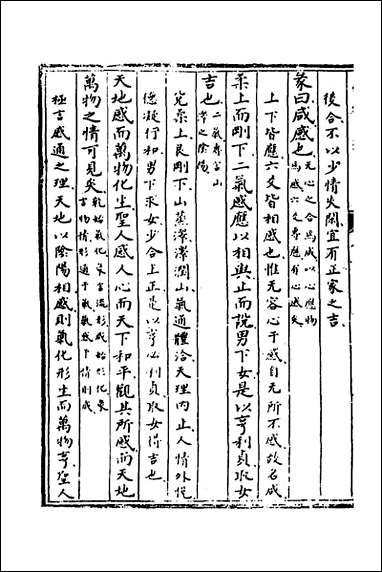 後合不以少情失閑宜有正家之吉
彖曰咸感也无心之合為咸以心應物為感六爻專應有心咸矣
上下皆應六爻皆相感也惟无容心于感自无所不感故名咸
柔上而剛下二氣感應以相與止而說男下女是以亨利貞取女
吉也二氣專言山澤之陰陽
兌柔上艮剛下山蒸澤澤潤山氣通體洽天理內止人情外悅
德凝行和男下求女少合上正是以亨必利貞取女得吉也
天地感而萬物化生聖人感人心而天下和平觀其所感而天地
萬物之情可見矣
極言感通之理天地以陰陽相感則氣化形生而萬物亨聖人